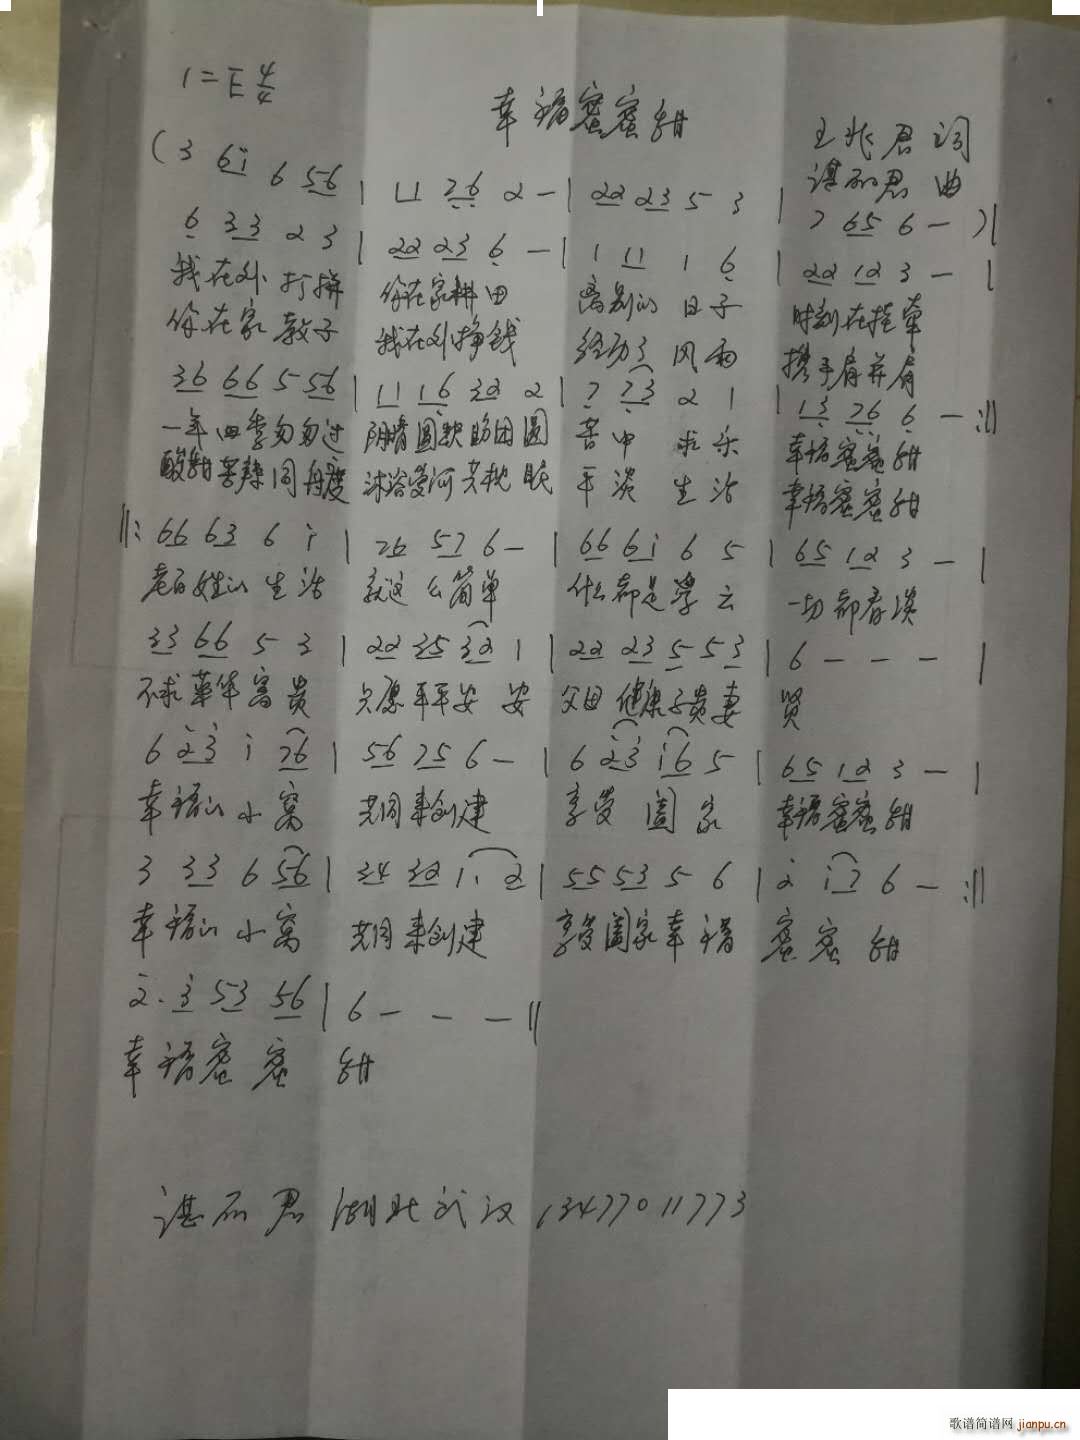 1=E 4/4
幸福蜜蜜甜
王兆君 词
谌 君 曲
(3 6i 6 56 | 11 76 2 - | 22 23 5 3 | 7 65 6 - )|
6 33 2 3 | 22 23 6 - | 1 11 1 6 | 22 12 3 - |
我在外 打拼 你在家耕田 离别的 日子 时刻在挂牵
你在家 教子 我在外挣钱 经历了 风雨 携手肩并肩
36 66 5 56 | 11 16 32 2 | 7 73 2 1 | 13 76 6 - :||
一年四季匆匆过 阴晴圆缺盼团圆 苦中 求乐 幸福蜜蜜甜
酸甜苦辣同舟度 沐浴爱河共枕眠 平淡 生活 幸福蜜蜜甜
||: 66 63 6 i | 76 57 6 - | 66 6i 6 5 | 65 12 3 - |
老百姓的 生活 就这么简单 什么都是浮云 一切都看淡
33 66 5 3 | 22 35 32 1 | 22 23 5 5 3 | 6 - - - |
不求荣华富贵 只愿平平安安 父母健康子贵妻 贤
6 23 i 76 | 56 75 6 - | 6 23 i6 5 | 65 12 3 - |
幸福的小窝 共同来创建 享受 阖家 幸福蜜蜜甜
3 33 6 56 | 34 32 1. 2 | 55 53 5 6 | 2 i7 6 - :||
幸福的小窝 共同来创建 享受阖家幸福 蜜蜜 甜
2. 3 53 56 | 6 - - - ||
幸福蜜蜜 甜
谌 君 湖北武汉 13477011773
歌谱简谱网 jianpu.cn